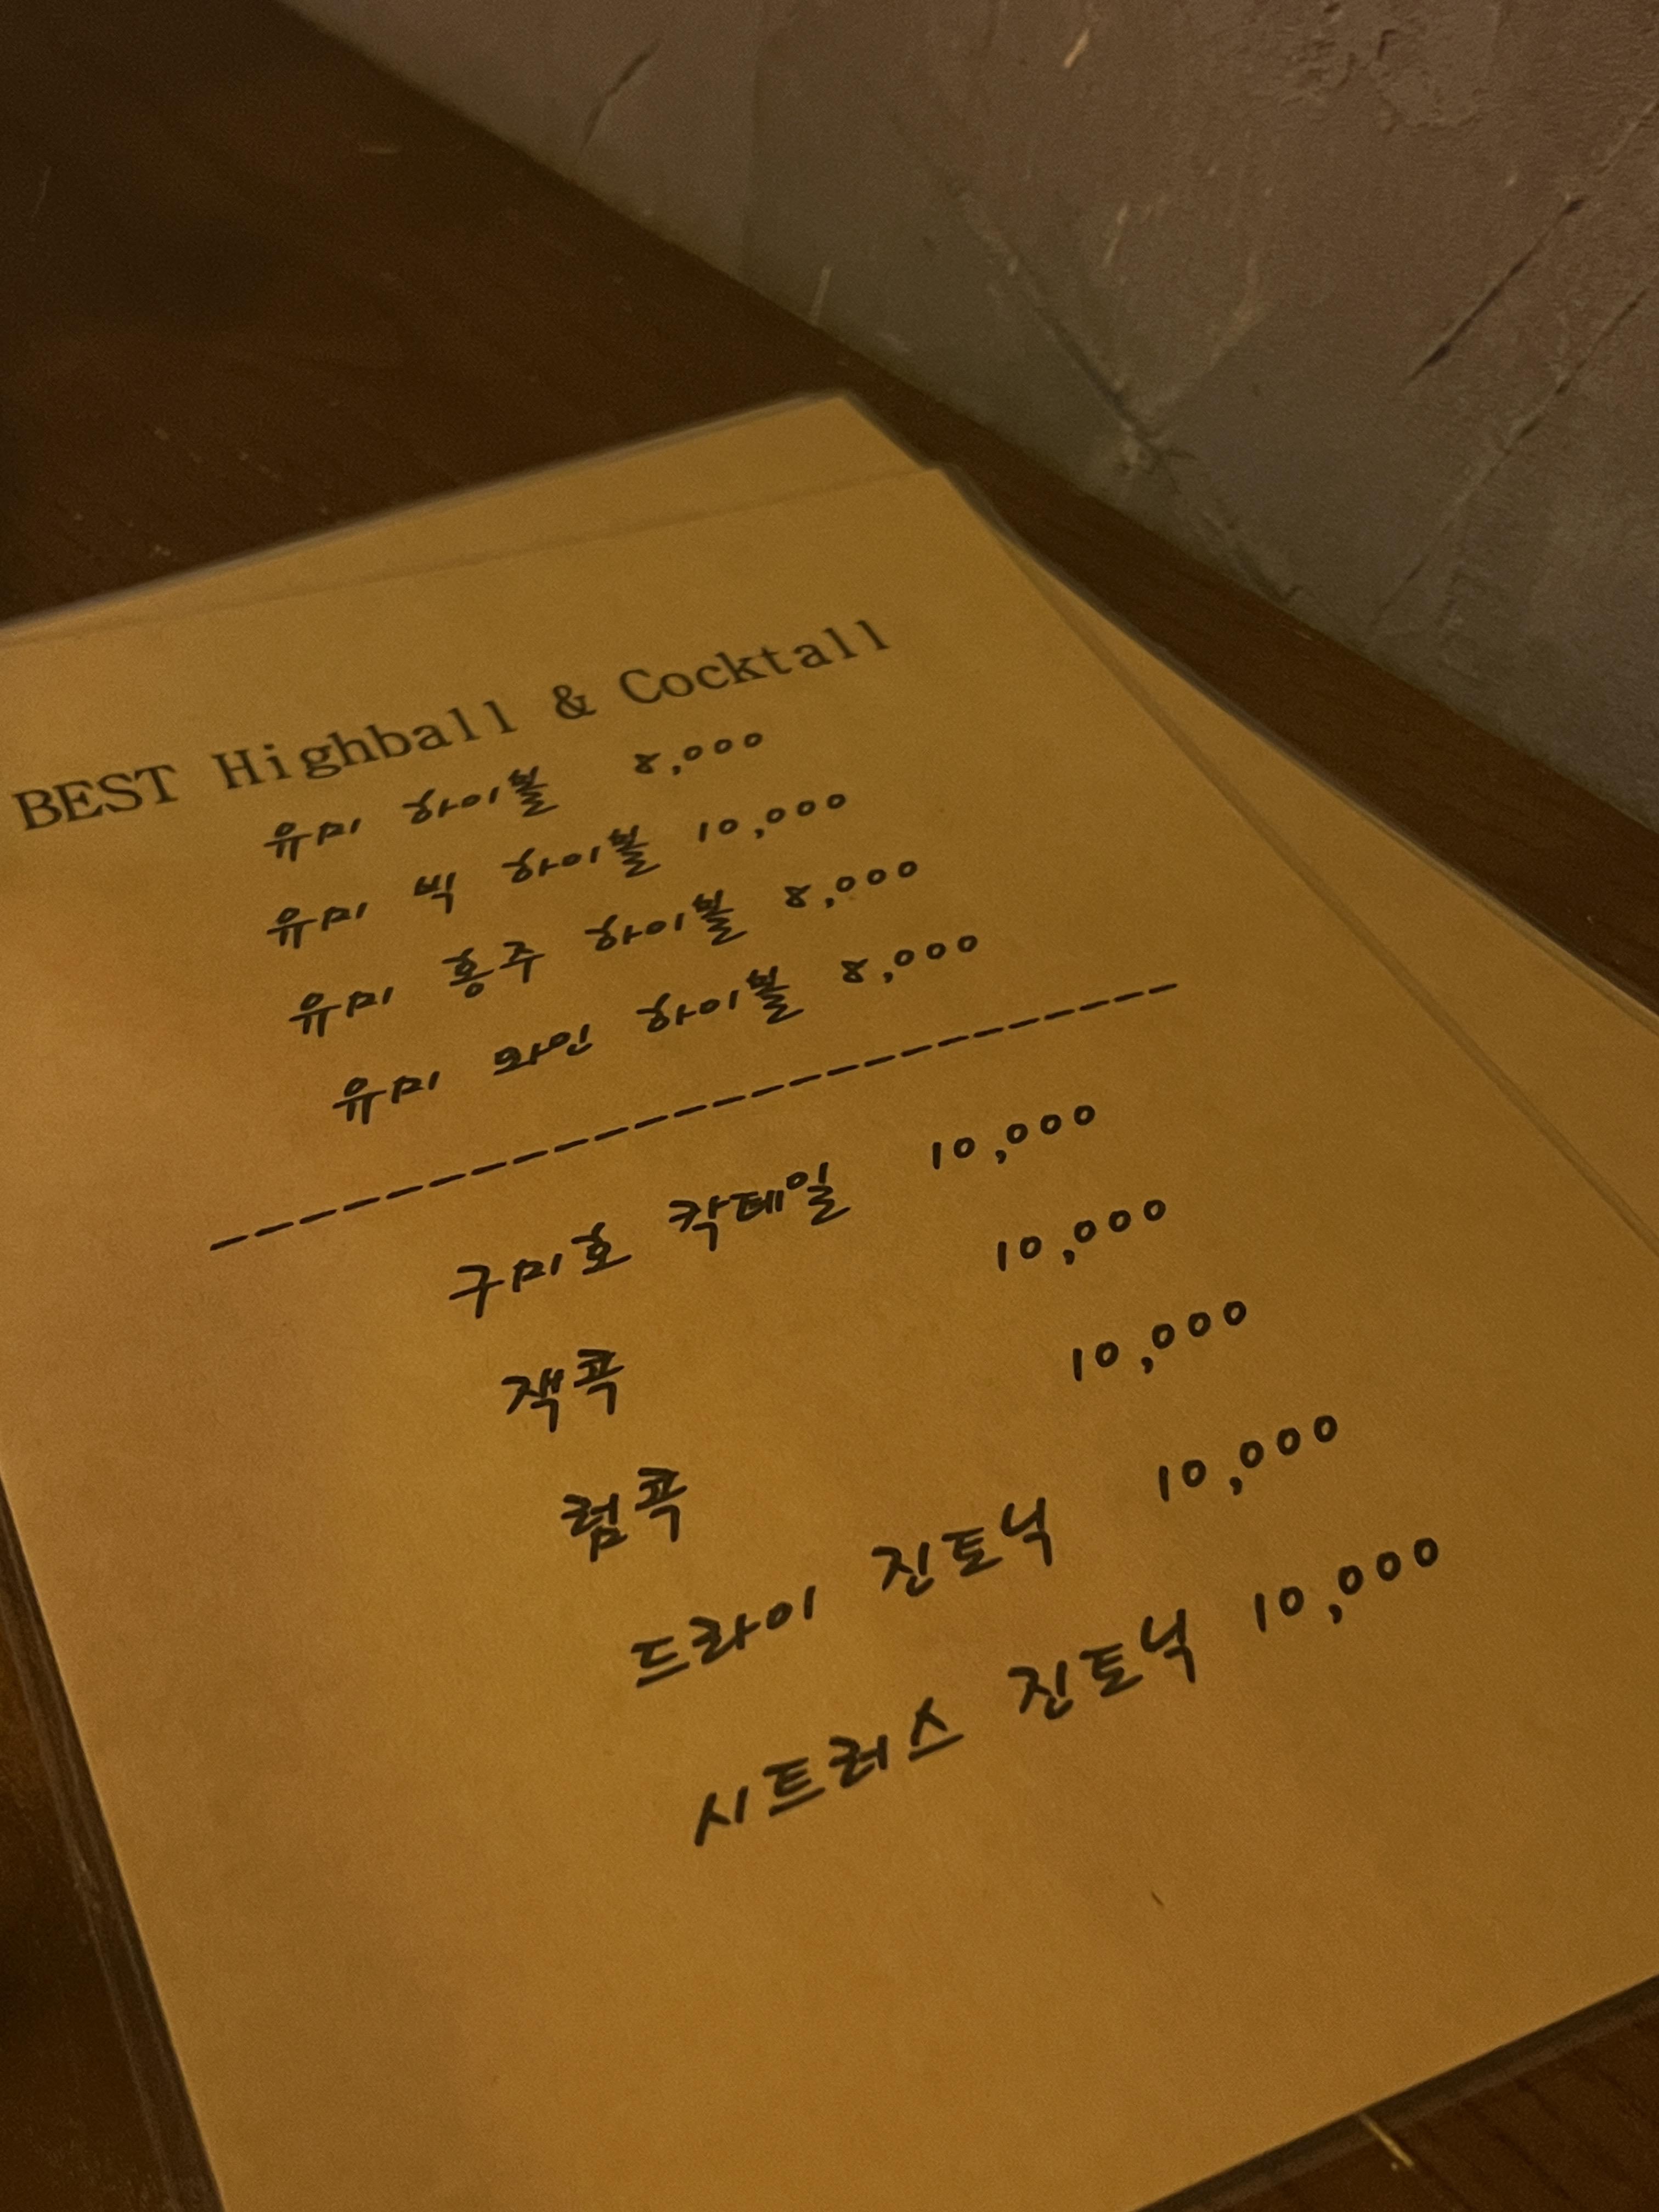 BEST Highball & Cocktall
유미 하이볼 8,000
유미 빅 하이볼 10,000
유미 홍주 하이볼 8,000
유미 와인 하이볼 8,000
------------------------
구미호 칵테일 10,000
잭콕 10,000
럼콕 10,000
드라이 진토닉 10,000
시트러스 진토닉 10,000